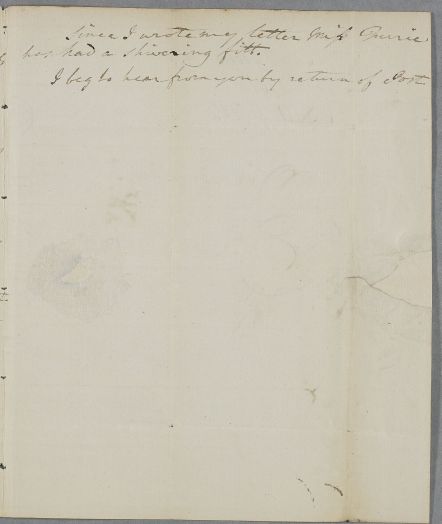 Since I wrote my letter Miss
has had a shivering fitt.
I beg to hear from you by return of Post